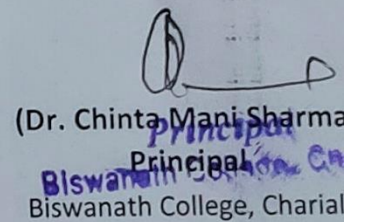 (Dr. Chinta Mani Sharma
Principal
Principal
Biswanath College, Ch
Biswanath College, Charial